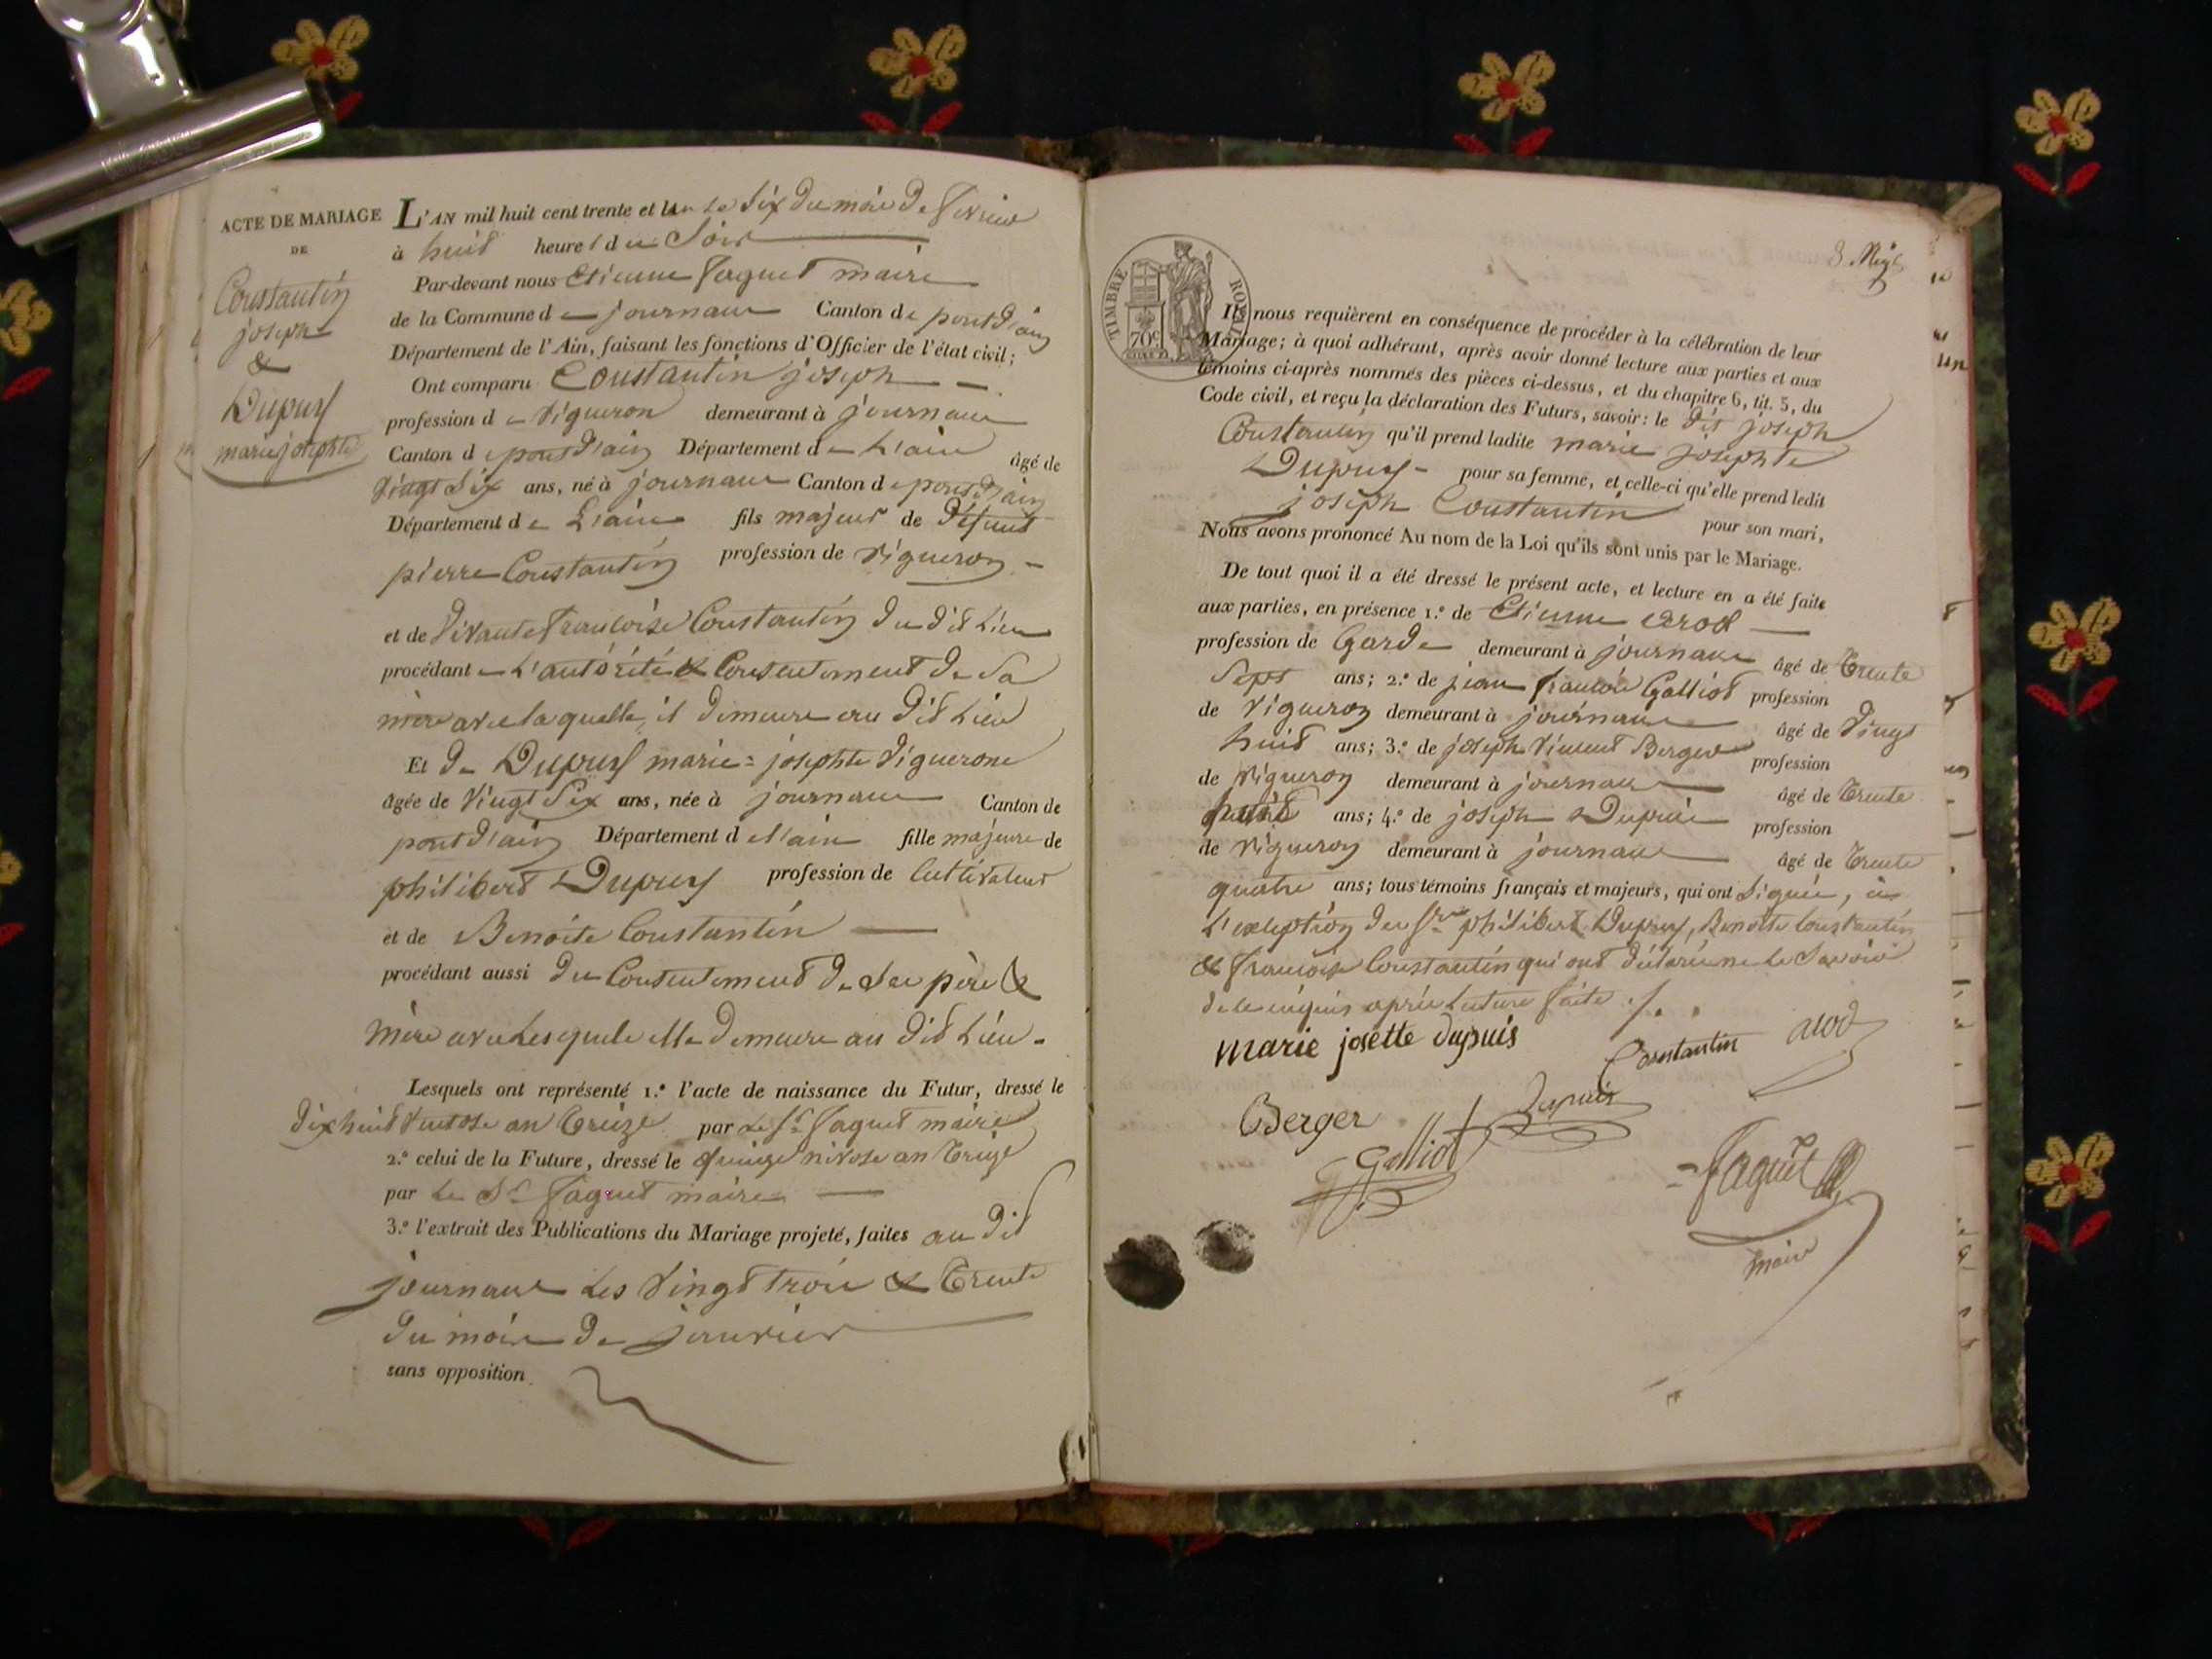 ACTE DE MARIAGE
DE
Constantin
joseph
&
Dupuy
marie josephte
L'AN mil huit cent trente et un le six du mois de fevrier
à huit heures du soir
Par-devant nous Etienne faguet maire
de la Commune de journans Canton de pont d'ain
Département de l'Ain, faisant les fonctions d'Officier de l'état civil;
Ont comparu Constantin joseph
profession de vigneron demeurant à journans
Canton de pont d'ain Département de L'ain âgé de
vingt six ans, né à journans Canton de pont d'ain
Département de L'ain fils majeur de défunt
pierre Constantin profession de vigneron
et de vivante francoise Constantin du dit Lieu
procédant de L'autorité & Consentement de sa
mère avec la quelle il demeure au dit Lieu
Et de Dupuy marie = josephte vignerone
âgée de vingt six ans, née à journans Canton de
pont d'ain Département de l'ain fille majeure de
philibert Dupuy profession de cultivateur
et de Benoite Constantin
procédant aussi du Consentement de ses père &
mère avec Lesquels elle demeure au dit Lieu.
Lesquels ont représenté 1.º l'acte de naissance du Futur, dressé le
dix huit ventose an treize par le Sr faguet maire
2.º celui de la Future, dressé le quinze nivose an treize
par le Sr faguet maire
3.º l'extrait des Publications du Mariage projeté, faites au dit
journans Les vingt trois & trente
du mois de janvier
sans opposition
TIMBRE ROYAL
70c.
Ils nous requièrent en conséquence de procéder à la célébration de leur
Mariage; à quoi adhérant, après avoir donné lecture aux parties et aux
témoins ci-après nommés des pièces ci-dessus, et du chapitre 6, tit. 5, du
Code civil, et reçu la déclaration des Futurs, savoir: le dit joseph
Constantin qu'il prend ladite marie josephte
Dupuy pour sa femme, et celle-ci qu'elle prend ledit
joseph Constantin pour son mari,
Nous avons prononcé Au nom de la Loi qu'ils sont unis par le Mariage.
De tout quoi il a été dressé le présent acte, et lecture en a été faite
aux parties, en présence 1.º de Etienne
profession de Garde demeurant à journans âgé de trente
sept ans; 2.º de jean francois Galliot profession
de vigneron demeurant à journans âgé de vingt
huit ans; 3.º de joseph vincent Berger profession
de vigneron demeurant à journans âgé de trente
huit ans; 4.º de joseph Dupuis profession
de vigneron demeurant à journans âgé de trente
quatre ans; tous témoins français et majeurs, qui ont signés, à
L'exception des philibert Dupuy, Benoite Constantin
& francoise Constantin qui ont déclaré ne le savoir
de ce enquis après Lecture faite
marie josette dupuis
Constantin
Berger
Dupuis
Galliot
faguet
maire